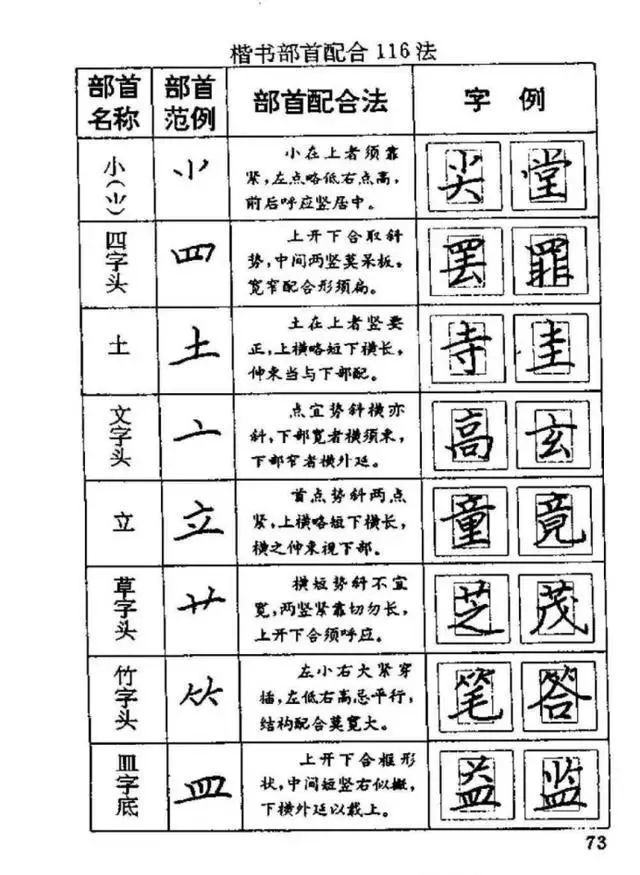 楷书部首配合116法
部首名称 部首范例 部首配合法 字例
小(⺌) ⺌ 小在上者须靠 尖 堂
紧,左点略低右点高,
前后呼应竖居中。
四字头 罒 上开下合取斜 罢 罪
势,中间两竖莫呆板。
宽窄配合形须扁。
土 土 土在上者竖要 寺 圭
正,上横略短下横长,
伸束当与下部配。
文字头 亠 点宜势斜横亦 高 玄
斜,下部宽者横须束,
下部窄者横外延。
立 立 首点势斜两点 童 竟
紧,上横略短下横长,
横之伸束视下部。
草字头 艹 横短势斜不宜 芝 茂
宽,两竖紧靠切勿长,
上开下合须呼应。
竹字头 ⺮ 左小右大紧穿 笔 答
插,左低右高忌平行,
结构配合莫宽大。
皿字底 皿 上开下合框形 益 监
状,中间短竖右似撇,
下横外延以载上。
73